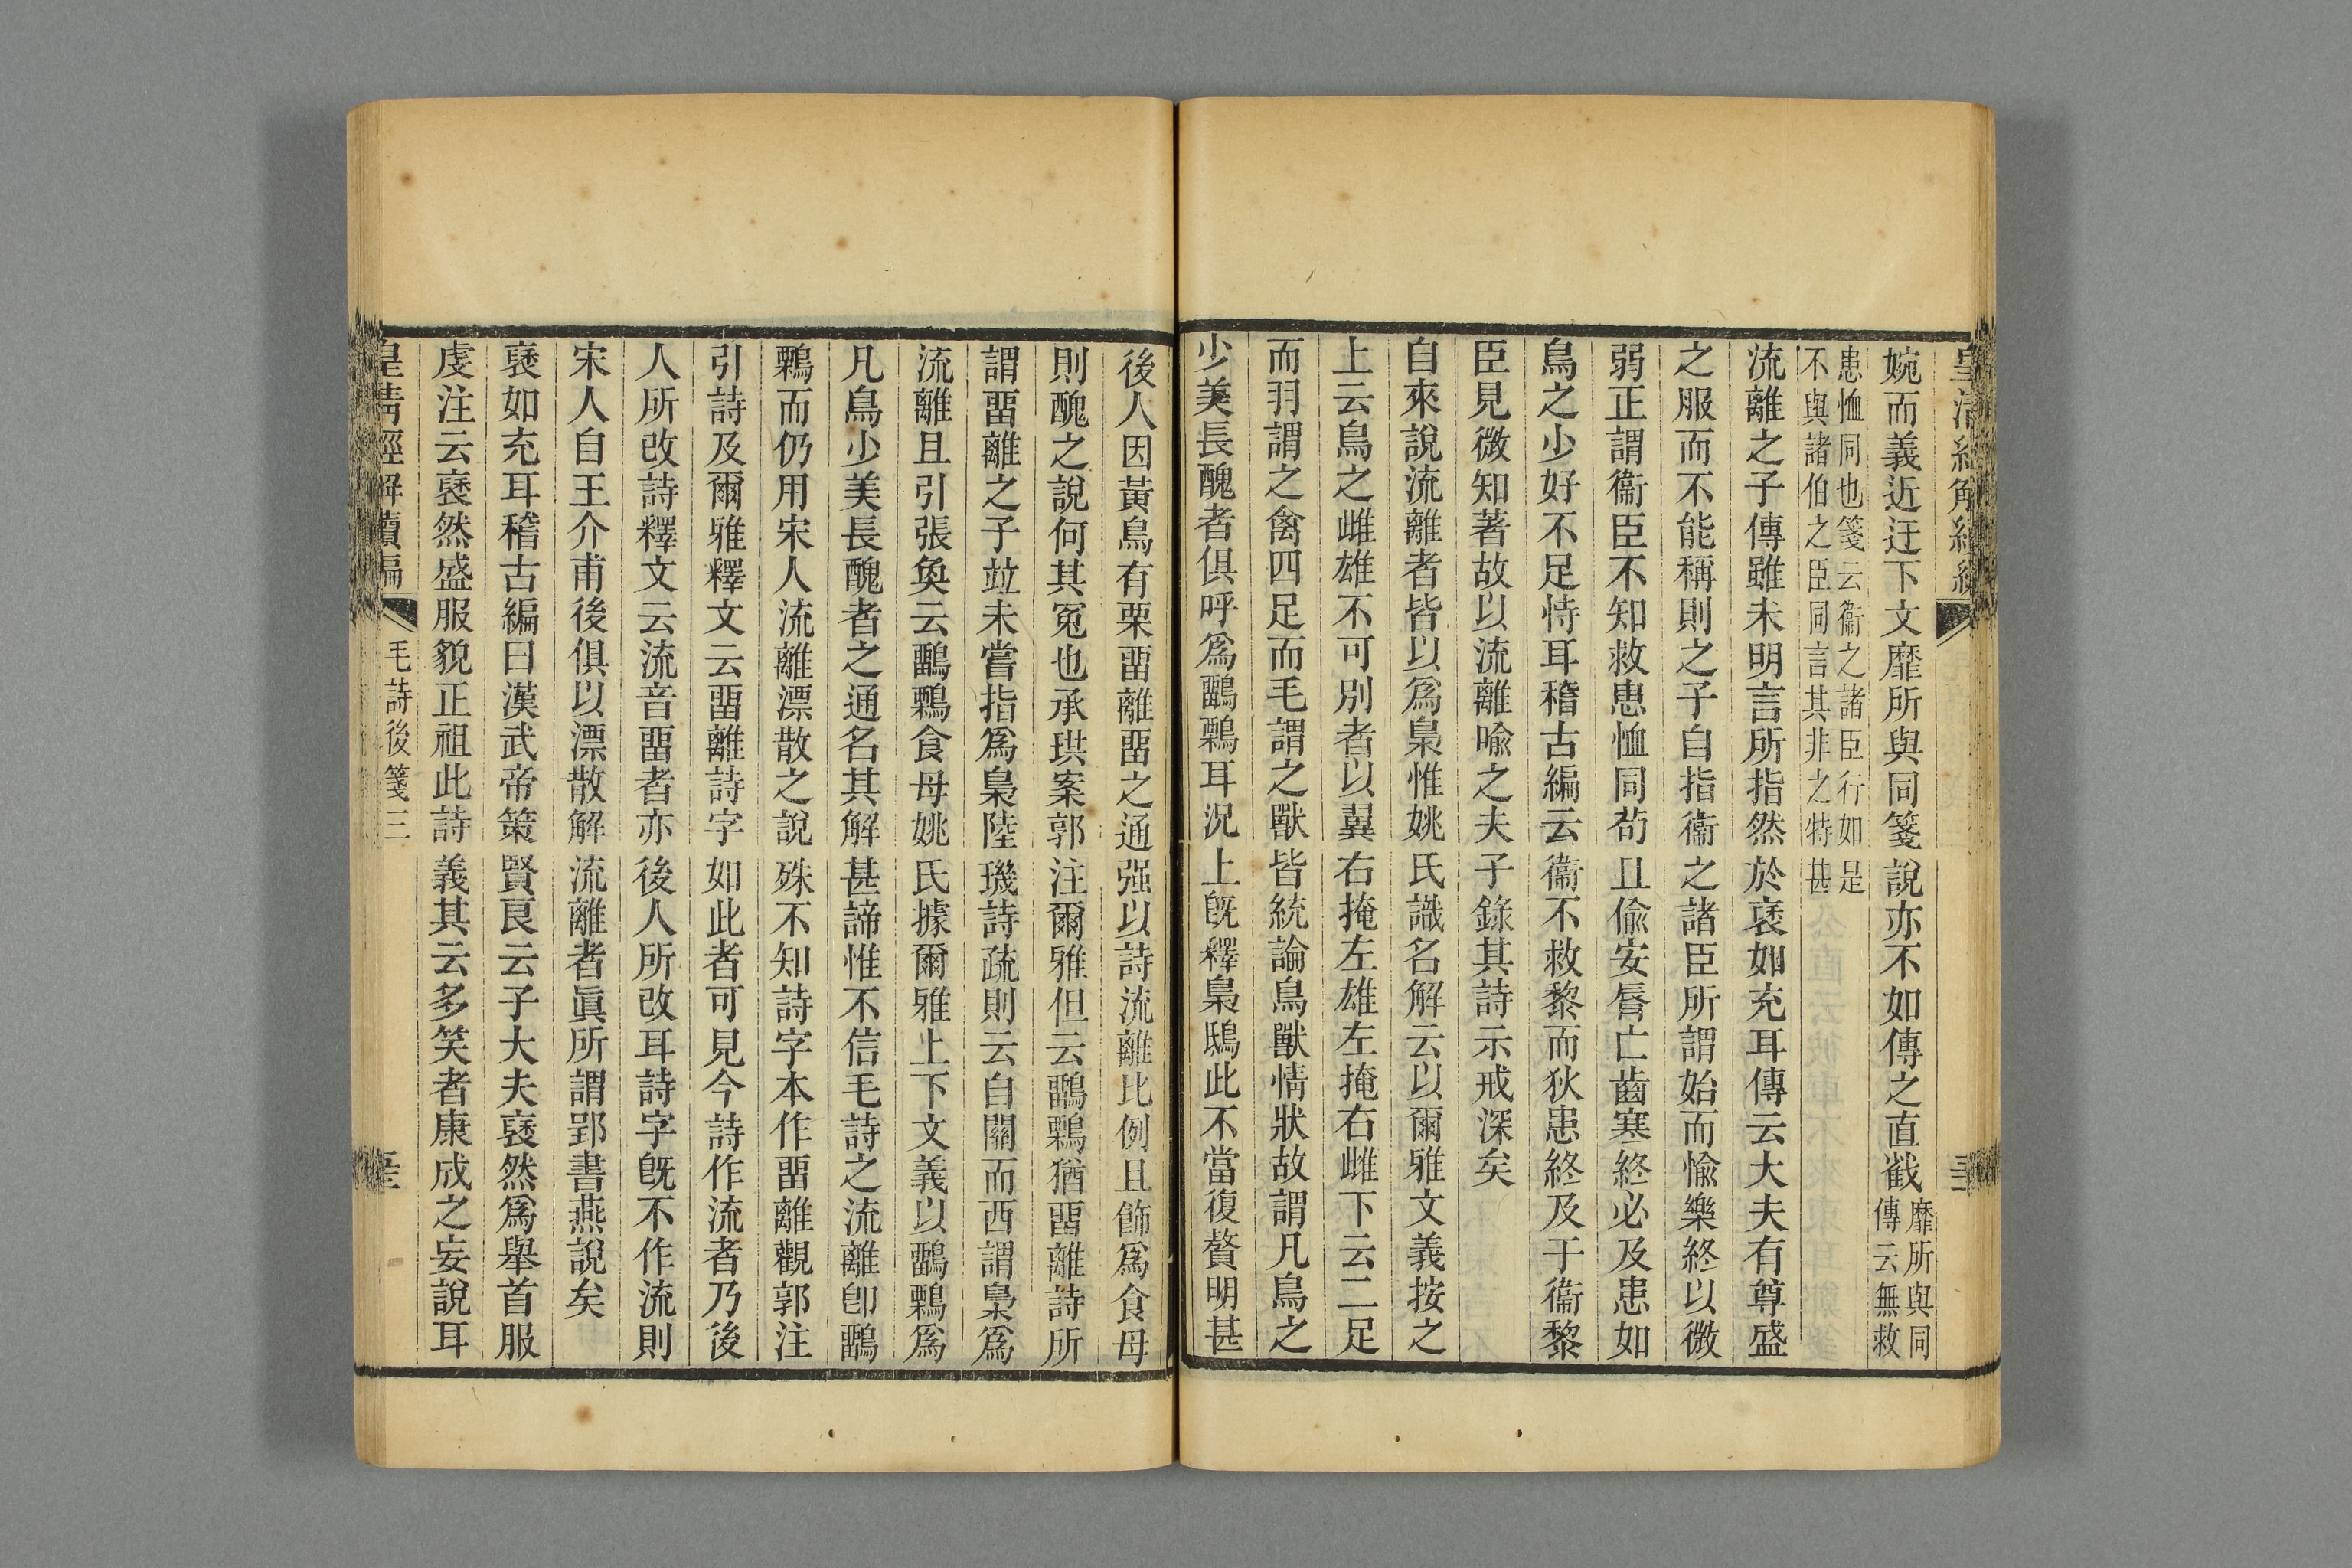 婉而義近迂下文靡所與同箋說亦不如傳之直截靡所與同傳云無救
患恤同也箋云衞之諸臣行如是不與諸伯之臣同言其非之特甚
流離之子傳雖未明言所指然於褎如充耳傳云大夫有尊盛
之服而不能稱則之子自指衞之諸臣所謂始而愉樂終以微
弱正謂衞臣不知救患恤同苟且偷安脣亡齒寒終必及患如
鳥之少好不足恃耳稽古編云衞不救黎而狄患終及于衞黎
臣見微知著故以流離喻之夫子錄其詩示戒深矣
自來說流離者皆以爲梟惟姚氏識名解云以爾雅文義按之
上云鳥之雌雄不可別者以翼右掩左雄左掩右雌下云二足
而羽謂之禽四足而毛謂之獸皆統論鳥獸情狀故謂凡鳥之
少美長醜者俱呼爲鶹鷅耳況上旣釋梟鴟此不當復贅明甚
後人因黃鳥有栗畱離畱之通强以詩流離比例且飾爲食母
則醜之說何其冤也承珙案郭注爾雅但云鶹鷅猶畱離詩所
謂畱離之子竝未嘗指爲梟陸璣詩疏則云自關而西謂梟爲
流離且引張奐云鶹鷅食母姚氏據爾雅上下文義以鶹鷅爲
凡鳥少美長醜者之通名其解甚諦惟不信毛詩之流離卽鶹
鷅而仍用宋人流離漂散之說殊不知詩字本作畱離觀郭注
引詩及爾雅釋文云畱離詩字如此者可見今詩作流者乃後
人所改詩釋文云流音畱者亦後人所改耳詩字旣不作流則
宋人自王介甫後俱以漂散解流離者眞所謂郢書燕說矣
褎如充耳稽古編曰漢武帝策賢良云子大夫褎然爲舉首服
虔注云褎然盛服貌正祖此詩義其云多笑者康成之妄說耳
皇清經解續編
毛詩後箋三